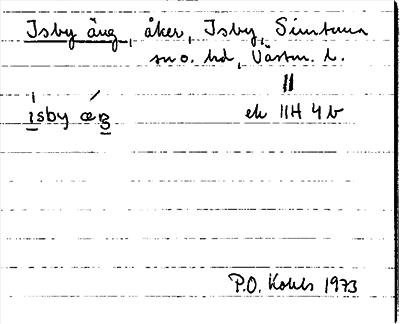 Isby äng, åker, Isby, Simtuna
sn o. hd, Västm. l.
isby æŋ
ek 11H 4 b
P.O. Kohls 1973